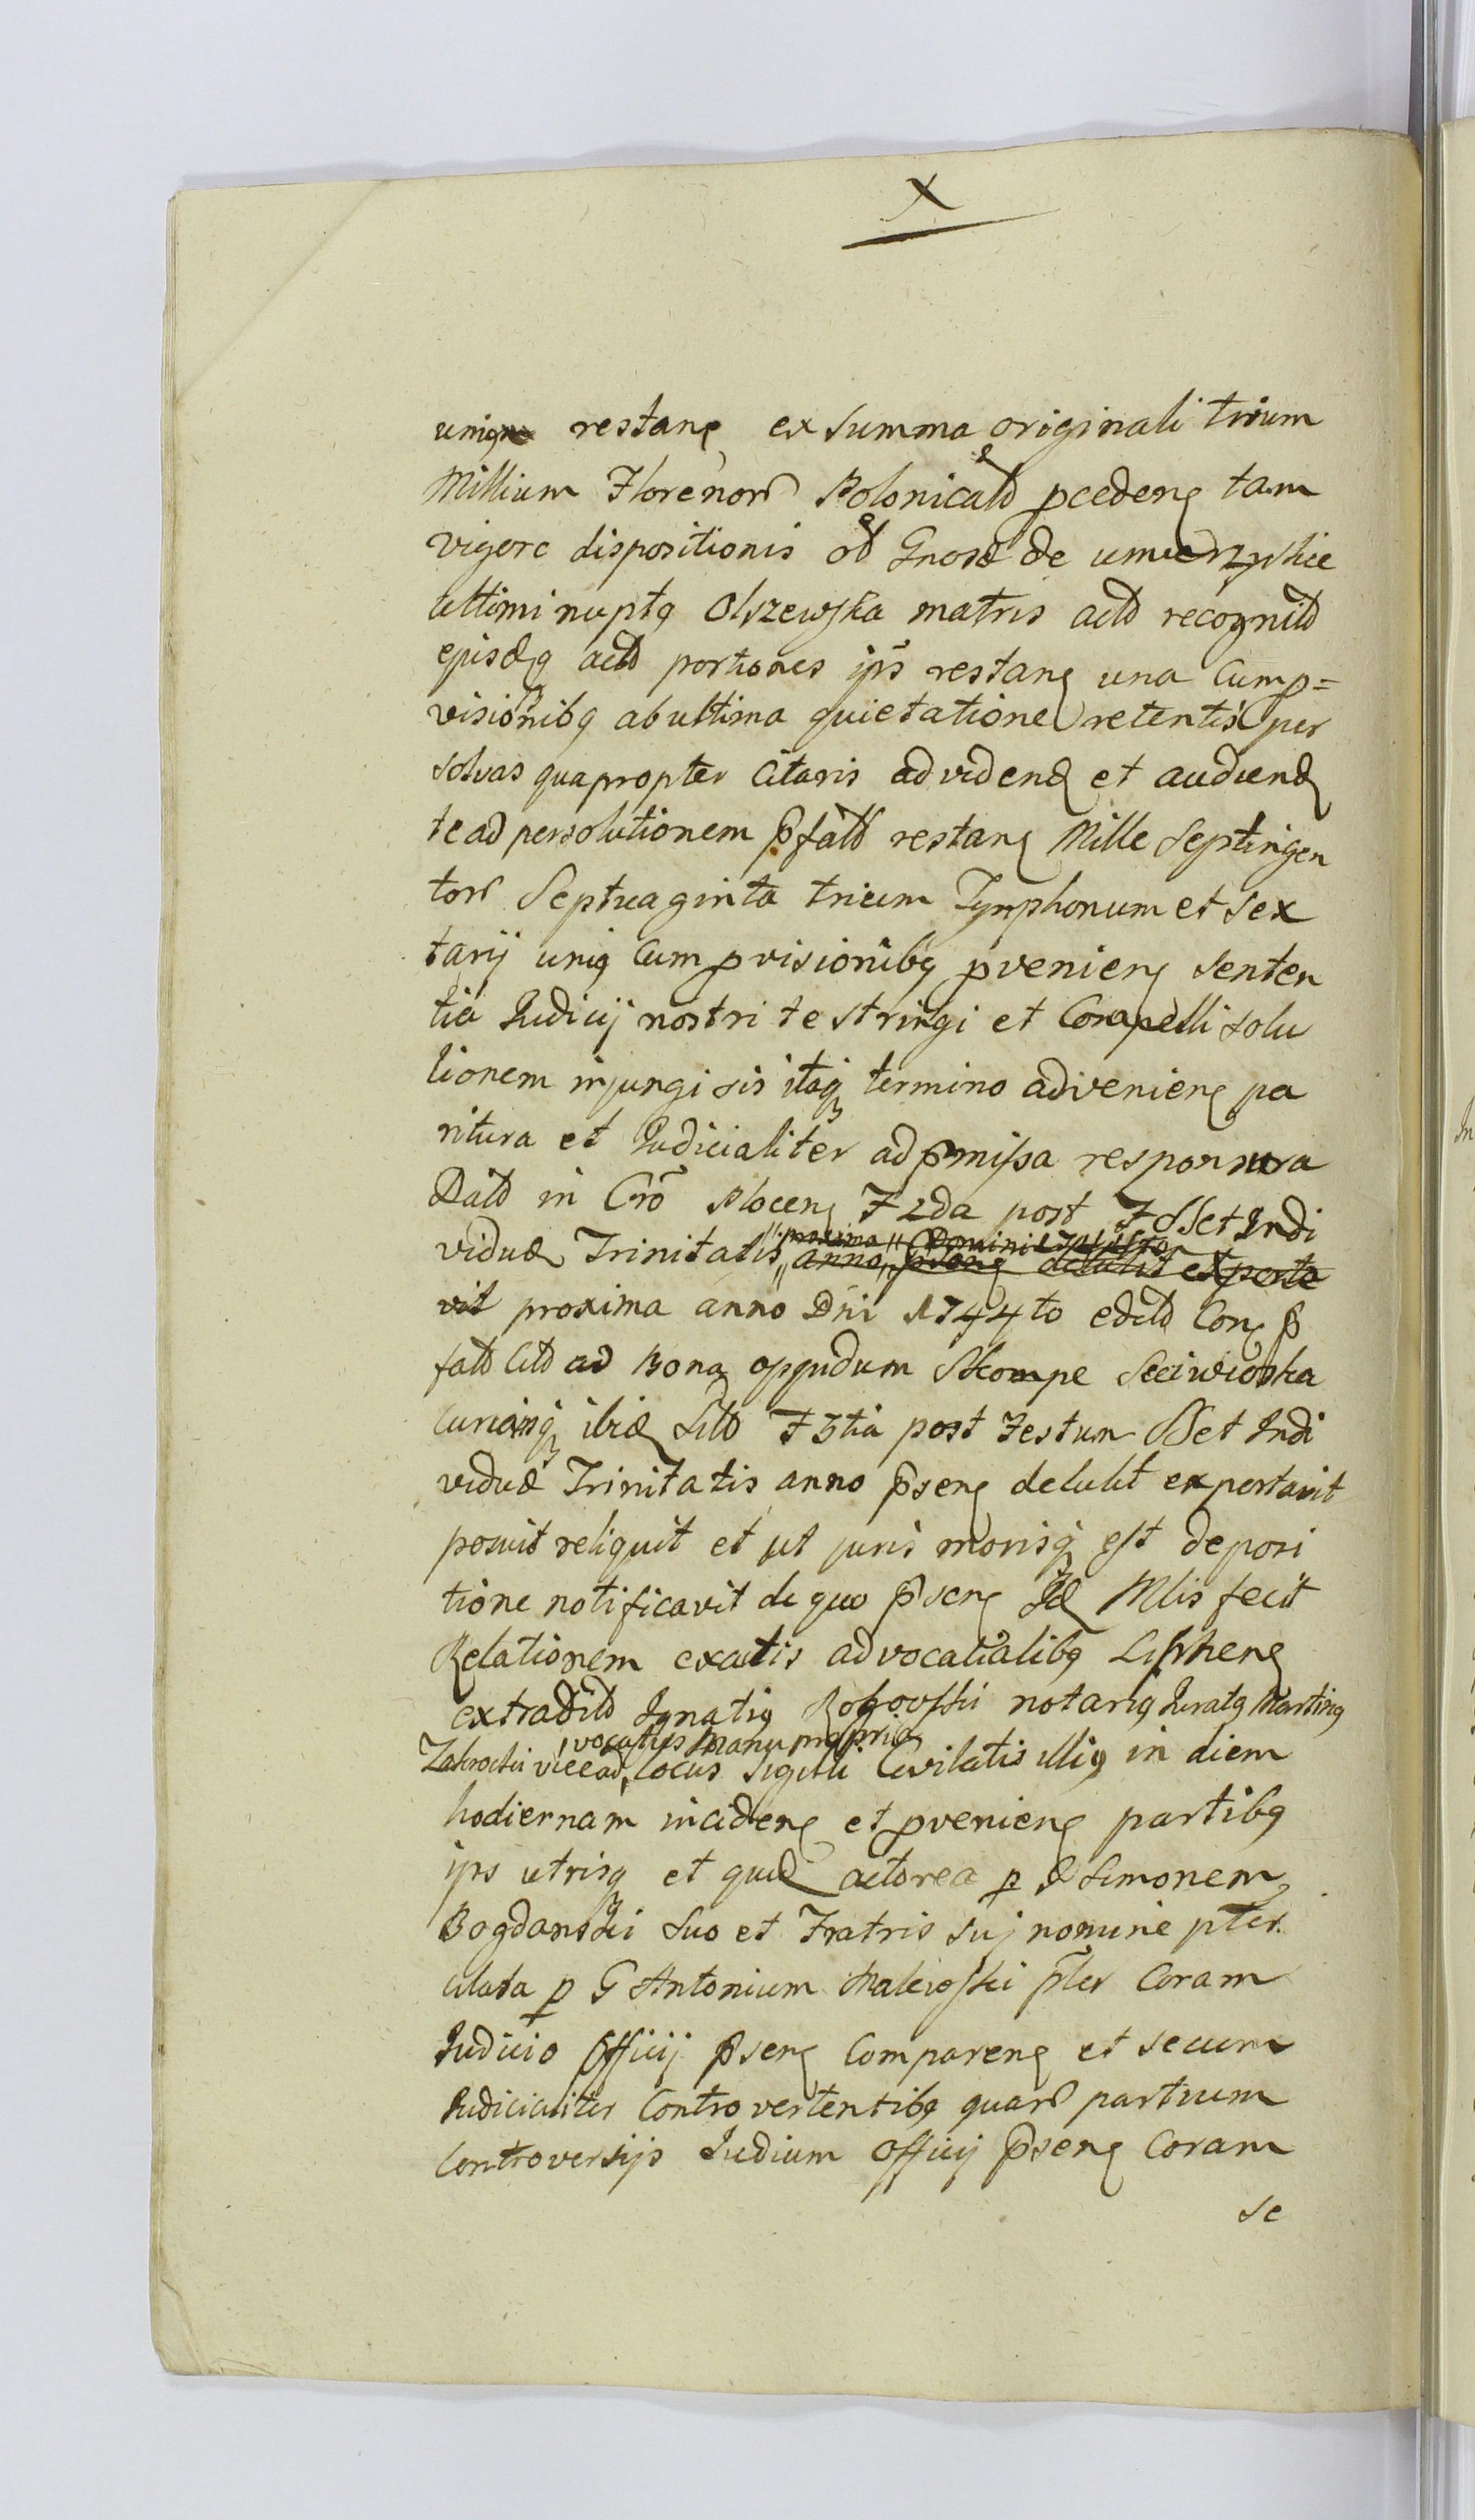 X
unius restanᶒ ex summa originali trium
Millium Florenorũ Polonicald pcedenᶒ tam
vigore dispositionis od Gnosæ de umierzyskie
ultimi nuptꝯ Olszewska matris actd recognitd
ejusdꝗ actd portiones ips restanᶒ una Cump=
visionibꝯ ab ultima quietatione retentis per
solvas quapropter Citaris ad vidend et audiend
te ad persolutionem p̃fatd restanᶒ Mille Septingen
torũ Septuaginta trium Tymphonum et sex
tarij uniꝯ Cum pvisionibꝯ pvenienᶒ senten
tia Judicij nostri te stringi et Compelli solu
tionem injungi sis itaqꝫ termino advenienᶒ pa
ritura et Judicialiter ad p̃missa responsura
Datd in Crõ Plocenᶒ F 2da post F SSet Indi
viduæ Trinitatis, anno p̃senᶒ detulit et porta
"proxima" Domini
vit proxima anno Dni 1744to editd Conᶒ p̃
fatd Citd ad Bona oppidum Skompe
Curiamqꝫ ibid Sitd F 3tia post Festum SSet Indi
viduæ Trinitatis anno p̃senᶒ detulit exportavit
posuit reliquit et ut juris morisqꝫ est de posi
tione notificavit de quo p̃senᶒ Id Mlis fecit
Relationem ex actis advocatialibꝯ Lipnenᶒ
extraditd Ignatiꝯ Rogowski notariꝯ Juratꝯ Martinꝯ
vocatus Manu propria
Zakrocki vicead, Locus Sigilli Civitatis illiꝯ in diem
hodiernam incidenᶒ et pvenienᶒ partibꝯ
ips utrisqꝫ et quid actorea p G Simonem
Bogdanski suo et Fratris suj nomine pter.
citata p G Antonium Malewski pter Coram
Judicio Officij p̃senᶒ Comparenᶒ et secum
Judicialiter Controvertentibꝯ quarũ partium
Controversijs Judium Officij p̃senᶒ Coram
se